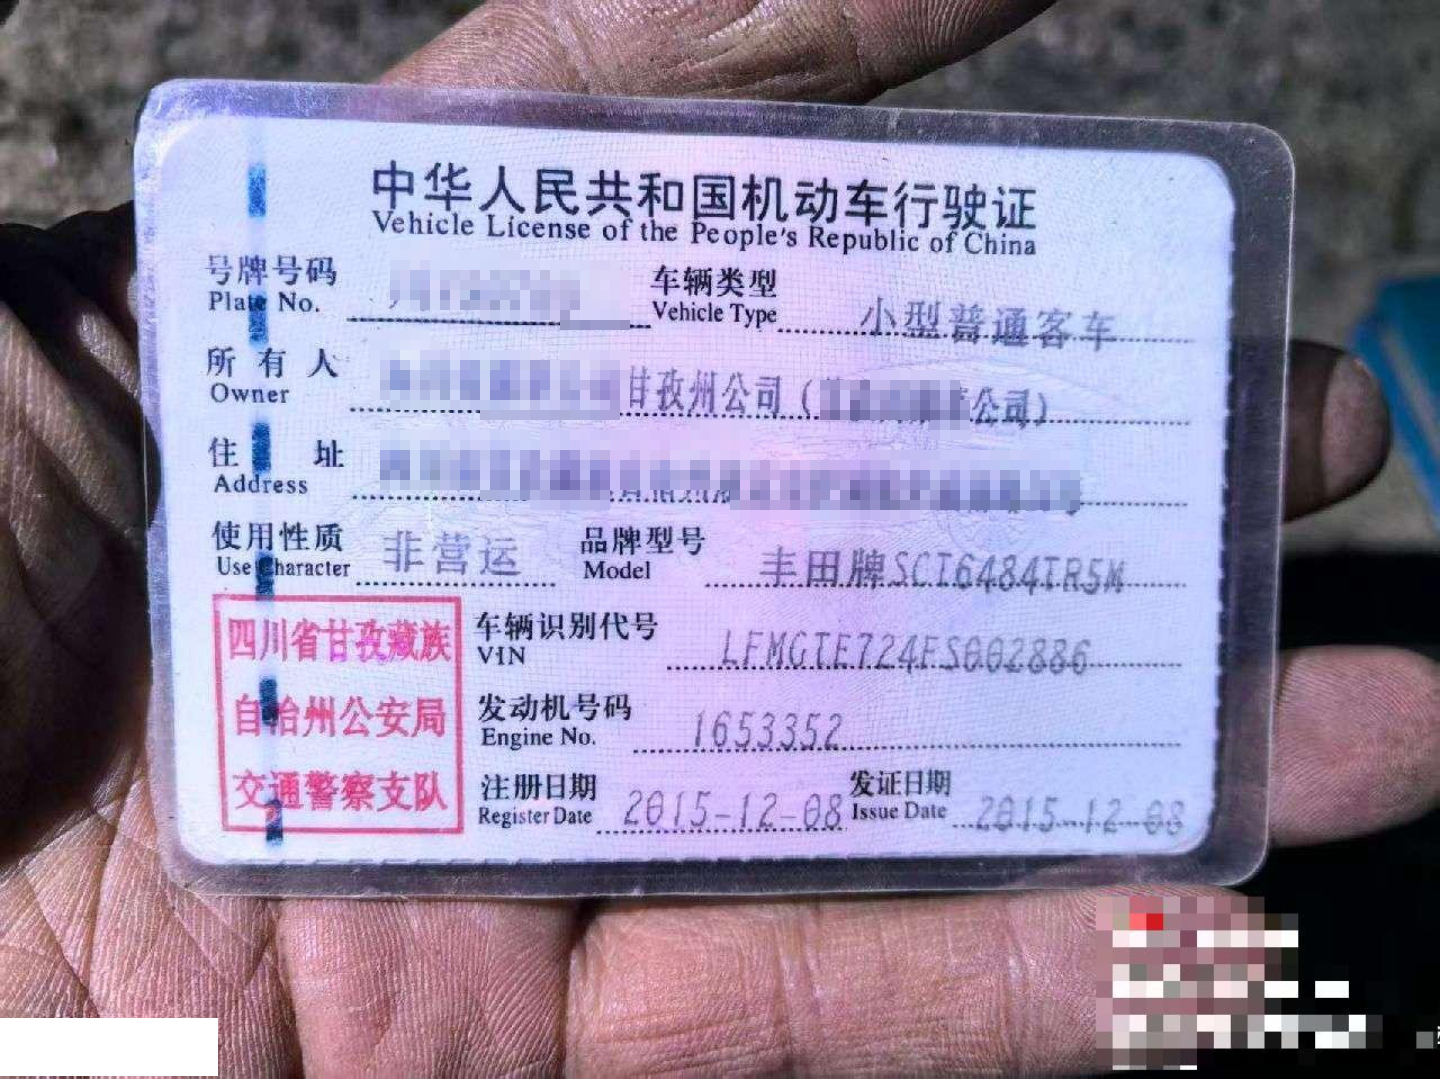 中华人民共和国机动车行驶证
Vehicle License of the People's Republic of China
号牌号码 车辆类型 小型普通客车
Plate No. Vehicle Type
所有人 甘孜州公司（ 公司）
Owner
住址
Address
使用性质 非营运 品牌型号 丰田牌SCT6484TR5M
Use Character Model
四川省甘孜藏族
自治州公安局
交通警察支队
车辆识别代号 LFMGTE724FS002886
VIN
发动机号码 1653352
Engine No.
注册日期 2015-12-08 发证日期 2015-12-08
Register Date Issue Date